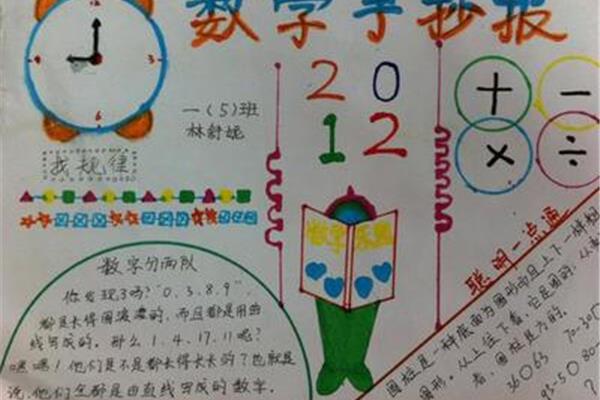 数字手抄报
12
3
6
9
一(5)班
林舒妮
20
12
+ −
× ÷
找规律
数学乐园
数字分两队
你发现了吗?"0、3、8、9",
都是长得圆滚滚的,而且都是用曲
线写成的。那么1、4、17、11呢?
嘿嘿!他们是不是都长得长长的?也就是
说,他们全都是由直线写成的数字。
聪明一点通
圆柱是一种底面为圆形而且上下一样粗
图形。从上往下看,它是圆的;从
看,图柱是方的。
36○63 70-30○
93-5○80